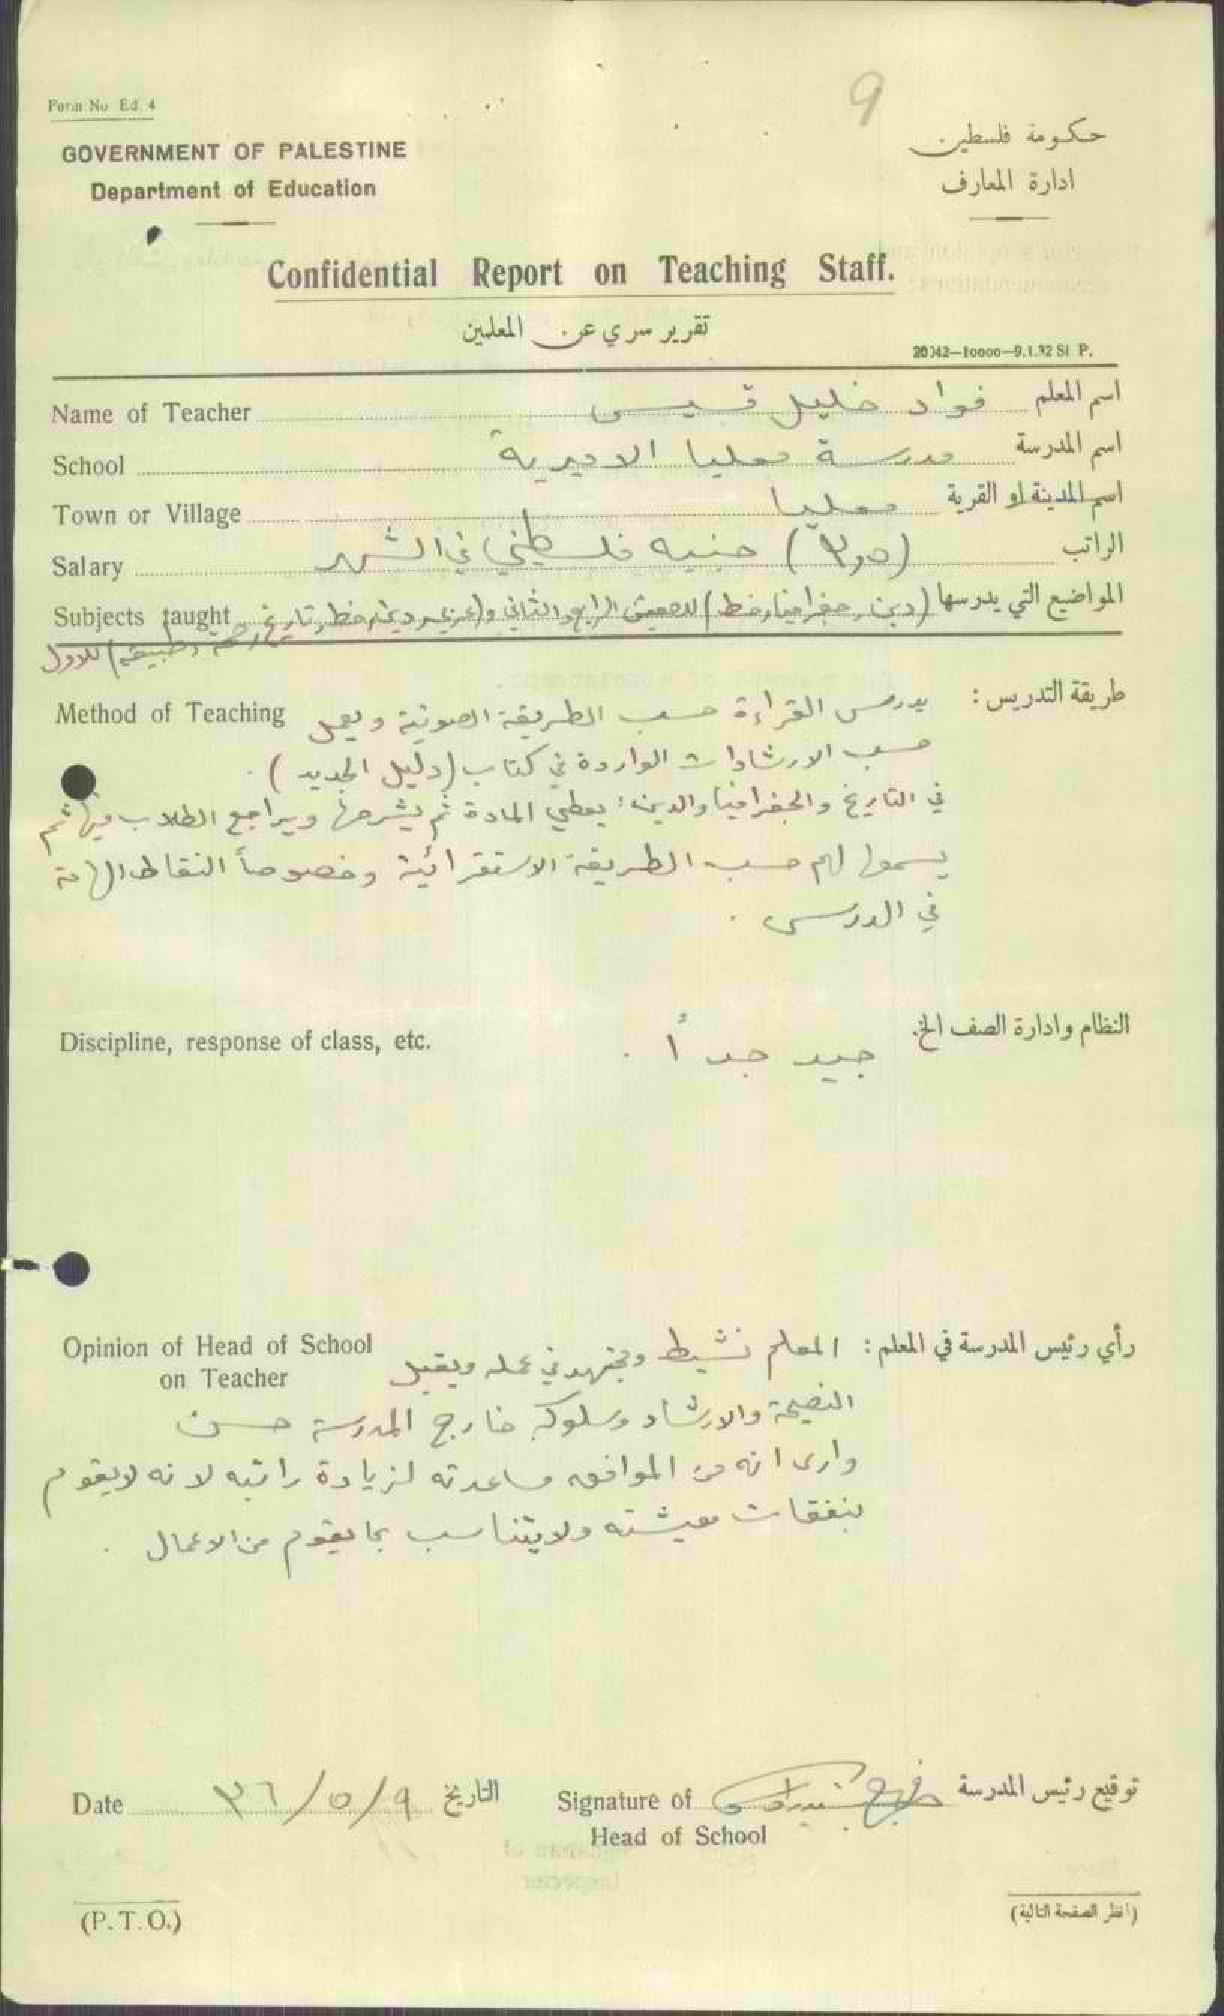 9
Form No Ed. 4
GOVERNMENT OF PALESTINE
Department of Education
حكومة فلسطين
ادارة المعارف
Confidential Report on Teaching Staff.
تقرير سري عن المعلمين
20042—10000—9.1.32 SI P.
Name of Teacher فواد خليل قسيس اسم المعلم
School مدرسة معليا الاميرية اسم المدرسة
Town or Village معليا اسم المدينة او القرية
Salary (٣٫٥) جنيه فلسطيني في الشهر الراتب
Subjects taught المواضيع التي يدرسها (دين، جغرافيا، خط) للصفين الرابع والثاني و(عربي، دين، خط، تاريخ، صحة، طبيعة) للاول
Method of Teaching طريقة التدريس : يدرس القراءة حسب الطريقة الصوتية ويعمل
حسب الارشادات الواردة في كتاب (دليل الجديد) .
في التاريخ والجغرافيا والدين : يعطي المادة ثم يشرحها ويراجع الطلاب فيها ثم
يسمعها لهم حسب الطريقة الاستقرائية وخصوصاً النقاط الهامة
في الدرس .
Discipline, response of class, etc. النظام وادارة الصف الخ.
جيد جداً .
Opinion of Head of School
on Teacher
رأي رئيس المدرسة في المعلم : المعلم نشيط ومجتهد في عمله ويقبل
النصيحة والارشاد وسلوكه خارج المدرسة حسن
وارى انه من الموافق مساعدته لزيادة راتبه لانه لا يقوم
بنفقات معيشته ولا يتناسب بما يقوم من الاعمال .
Date ٩/٥/٣٦ التاريخ
Signature of توقيع رئيس المدرسة
Head of School
(P. T. O.)
(انظر الصفحة التالية)